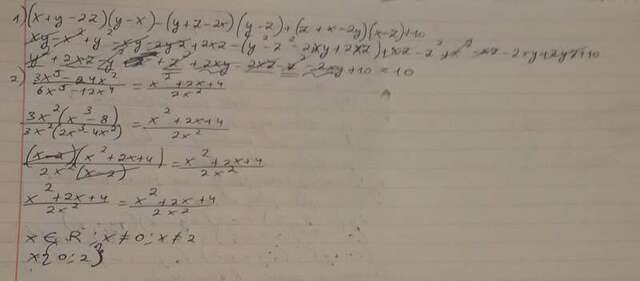 1) (x+y-2z)(y-x)-(y+z-2x)(y-z)+(z+x-2y)(x-z)+10
xy-x²+y²-xy-2yz+2xz-(y²-z²-2xy+2xz)+xz-z²+x²-xz-2xy+2yz+10
+10=10
2) (3x⁵-24x²)/(6x⁵-12x⁴) = (x²+2x+4)/(2x²)
(3x²(x³-8))/(3x²(2x³-4x²)) = (x²+2x+4)/(2x²)
((x-2)(x²+2x+4))/(2x²(x-2)) = (x²+2x+4)/(2x²)
(x²+2x+4)/(2x²) = (x²+2x+4)/(2x²)
x∈R; x≠0; x≠2
x{0;2}